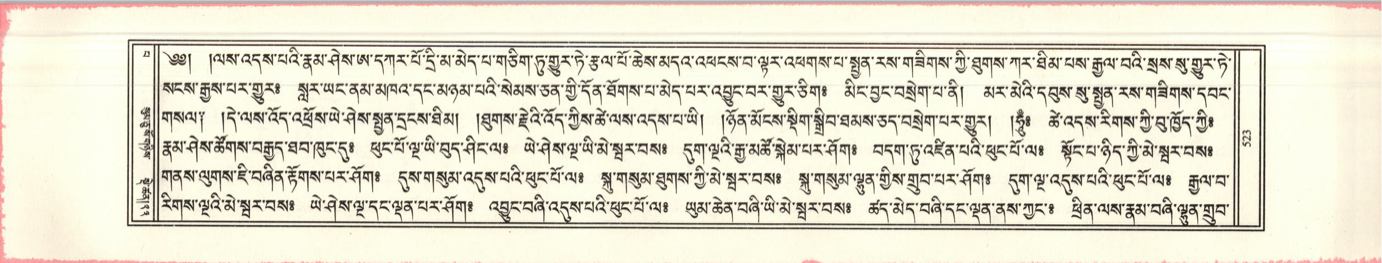 ༄༅། །ལས་འདས་པའི་རྣམ་ཤེས་ཨ་དཀར་པོ་དྲི་མ་མེད་པ་གཅིག་ཏུ་གྱུར་ཏེ་རྩལ་པོ་ཆེས་མདའ་འཕངས་བ་ལྟར་འཕགས་པ་སྤྱན་རས་གཟིགས་ཀྱི་ཐུགས་ཀར་ཐིམ་པས་རྒྱལ་བའི་སྲས་སུ་གྱུར་ཏེ་
སངས་རྒྱས་པར་གྱུར༔ སླར་ཡང་ནམ་མཁའ་དང་མཉམ་པའི་སེམས་ཅན་གྱི་དོན་ཐོགས་པ་མེད་པར་འབྱུང་བར་གྱུར་ཅིག༔ མིང་བྱང་བསྲེག་པ་ནི། མར་མེའི་དབུས་སུ་སྤྱན་རས་གཟིགས་དབང་
གསལ༔ །དེ་ལས་འོད་འཕྲོས་ཡེ་ཤེས་སྤྱན་དྲངས་ཐིམ། །ཐུགས་རྗེའི་འོད་ཀྱིས་ཚེ་ལས་འདས་པ་ཡི། །ཉོན་མོངས་སྡིག་སྒྲིབ་ཐམས་ཅད་བསྲེག་པར་གྱུར། །ཧྲཱིཿ ཚེ་འདས་རིགས་ཀྱི་བུ་ཁྱོད་ཀྱི༔
རྣམ་ཤེས་ཚོགས་བརྒྱད་ཐབ་ཁུང་དུ༔ ཕུང་པོ་ལྔ་ཡི་བུད་ཤིང་ལ༔ ཡེ་ཤེས་ལྔ་ཡི་མེ་སྦར་བས༔ དུག་ལྔའི་རྒྱ་མཚོ་སྐེམ་པར་ཤོག༔ བདག་ཏུ་འཛིན་པའི་ཕུང་པོ་ལ༔ སྟོང་པ་ཉིད་ཀྱི་མེ་སྦར་བས༔
གནས་ལུགས་ཇི་བཞིན་རྟོགས་པར་ཤོག༔ དུས་གསུམ་འདུས་པའི་ཕུང་པོ་ལ༔ སྐུ་གསུམ་ཐུགས་ཀྱི་མེ་སྦར་བས༔ སྐུ་གསུམ་ལྷུན་གྱིས་གྲུབ་པར་ཤོག༔ དུག་ལྔ་འདུས་པའི་ཕུང་པོ་ལ༔ རྒྱལ་བ་
རིགས་ལྔའི་མེ་སྦར་བས༔ ཡེ་ཤེས་ལྔ་དང་ལྡན་པར་ཤོག༔ འབྱུང་བཞི་འདུས་པའི་ཕུང་པོ་ལ༔ ཡུམ་ཆེན་བཞི་ཡི་མེ་སྦར་བས༔ ཚད་མེད་བཞི་དང་ལྡན་ནས་ཀྱང་༔ ཕྲིན་ལས་རྣམ་བཞི་ལྷུན་གྲུབ་
523